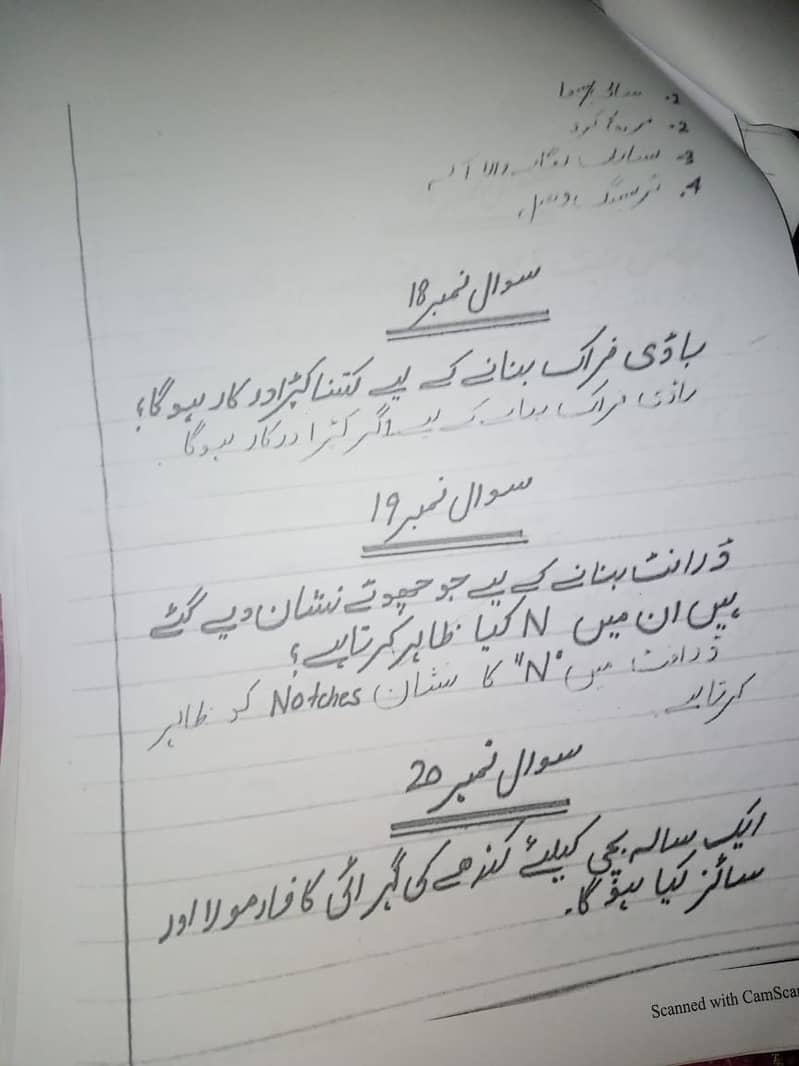 1. سلائی
2.
3. سلائی والا آلہ
4.
سوال نمبر 18
باڈی فراک بنانے کے لیے کتنا کپڑا درکار ہو گا؟
باڈی فراک بنانے کے لیے گز کپڑا درکار ہوگا
سوال نمبر 19
ڈرافٹ بنانے کے لیے جو چھوٹے نشان دیے گئے
ہیں ان میں N کیا ظاہر کرتا ہے؟
ڈرافٹ میں "N" کا نشان Notches کو ظاہر
کرتا ہے
سوال نمبر 20
ایک سالہ بچی کیلئے کندھے کی گہرائی کا فارمولا اور
سائز کیا ہو گا.
Scanned with CamScan